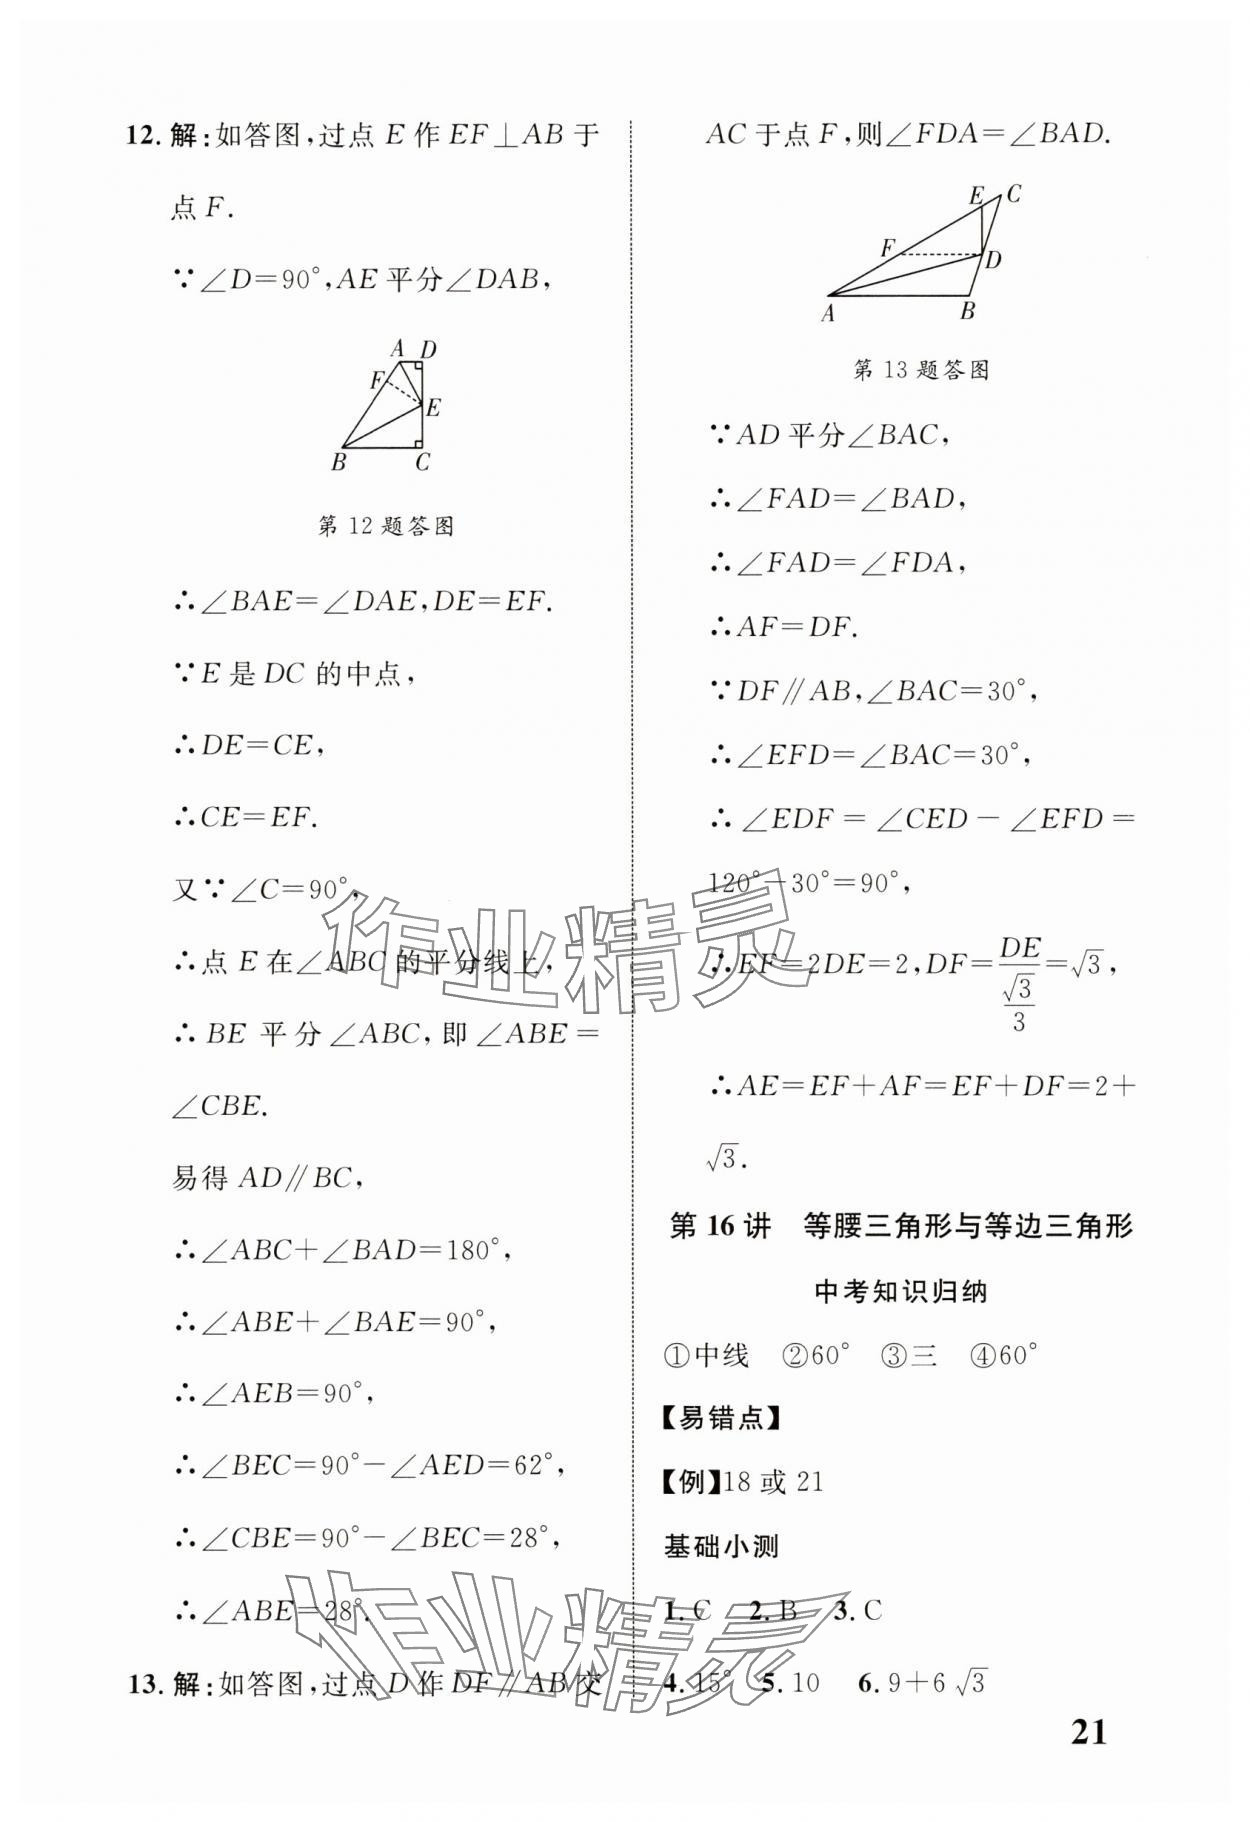 12. 解:如答图,过点 E 作 EF⊥AB 于
点 F.
∵∠D=90°,AE 平分∠DAB,
A D
F
E
B C
第 12 题答图
∴∠BAE=∠DAE,DE=EF.
∵E 是 DC 的中点,
∴DE=CE,
∴CE=EF.
又∵∠C=90°,
∴点 E 在∠ABC 的平分线上,
∴BE 平分∠ABC,即∠ABE=
∠CBE.
易得 AD∥BC,
∴∠ABC+∠BAD=180°,
∴∠ABE+∠BAE=90°,
∴∠AEB=90°,
∴∠BEC=90°-∠AED=62°,
∴∠CBE=90°-∠BEC=28°,
∴∠ABE=28°.
13. 解:如答图,过点 D 作 DF∥AB 交
AC 于点 F,则∠FDA=∠BAD.
E C
F
D
A B
第 13 题答图
∵AD 平分∠BAC,
∴∠FAD=∠BAD,
∴∠FAD=∠FDA,
∴AF=DF.
∵DF∥AB,∠BAC=30°,
∴∠EFD=∠BAC=30°,
∴∠EDF=∠CED-∠EFD=
120°-30°=90°,
∴EF=2DE=2,DF=DE/(√3/3)=√3,
∴AE=EF+AF=EF+DF=2+
√3.
第 16 讲 等腰三角形与等边三角形
中考知识归纳
①中线 ②60° ③三 ④60°
【易错点】
【例】18 或 21
基础小测
1. C 2. B 3. C
4. 15° 5. 10 6. 9+6√3
21
作业精灵
作业精灵